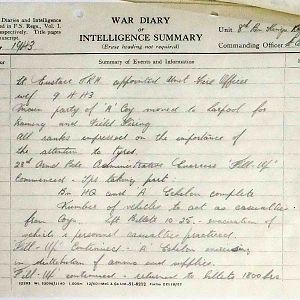 WAR DIARY
or
INTELLIGENCE SUMMARY
(Erase heading not required)
Diaries and Intelligence
d in F.S. Regs., Vol. I.
espectively. Title pages
manuscript.
1943
Unit
Commanding Officer
Summary of Events and Information
Lt Eustace appointed Unit Fire Officer
wef 9
Main party of 'A' Coy moved to for
training and Field Firing
All ranks impressed on the importance of
the attention to tyres.
Administrative Exercise 'Fill-Up'
Commenced - taking part.
Bn HQ and A Echelon complete
Number of vehicles to act as casualties
from Coys. Left Billets 10 35 - evacuation of
vehicle & personnel casualties practised.
'Fill-Up' continued - 'A' Echelon exercising
in distribution of ammo and supplies.
'Fill-Up' continued - returned to billets 1800 hrs